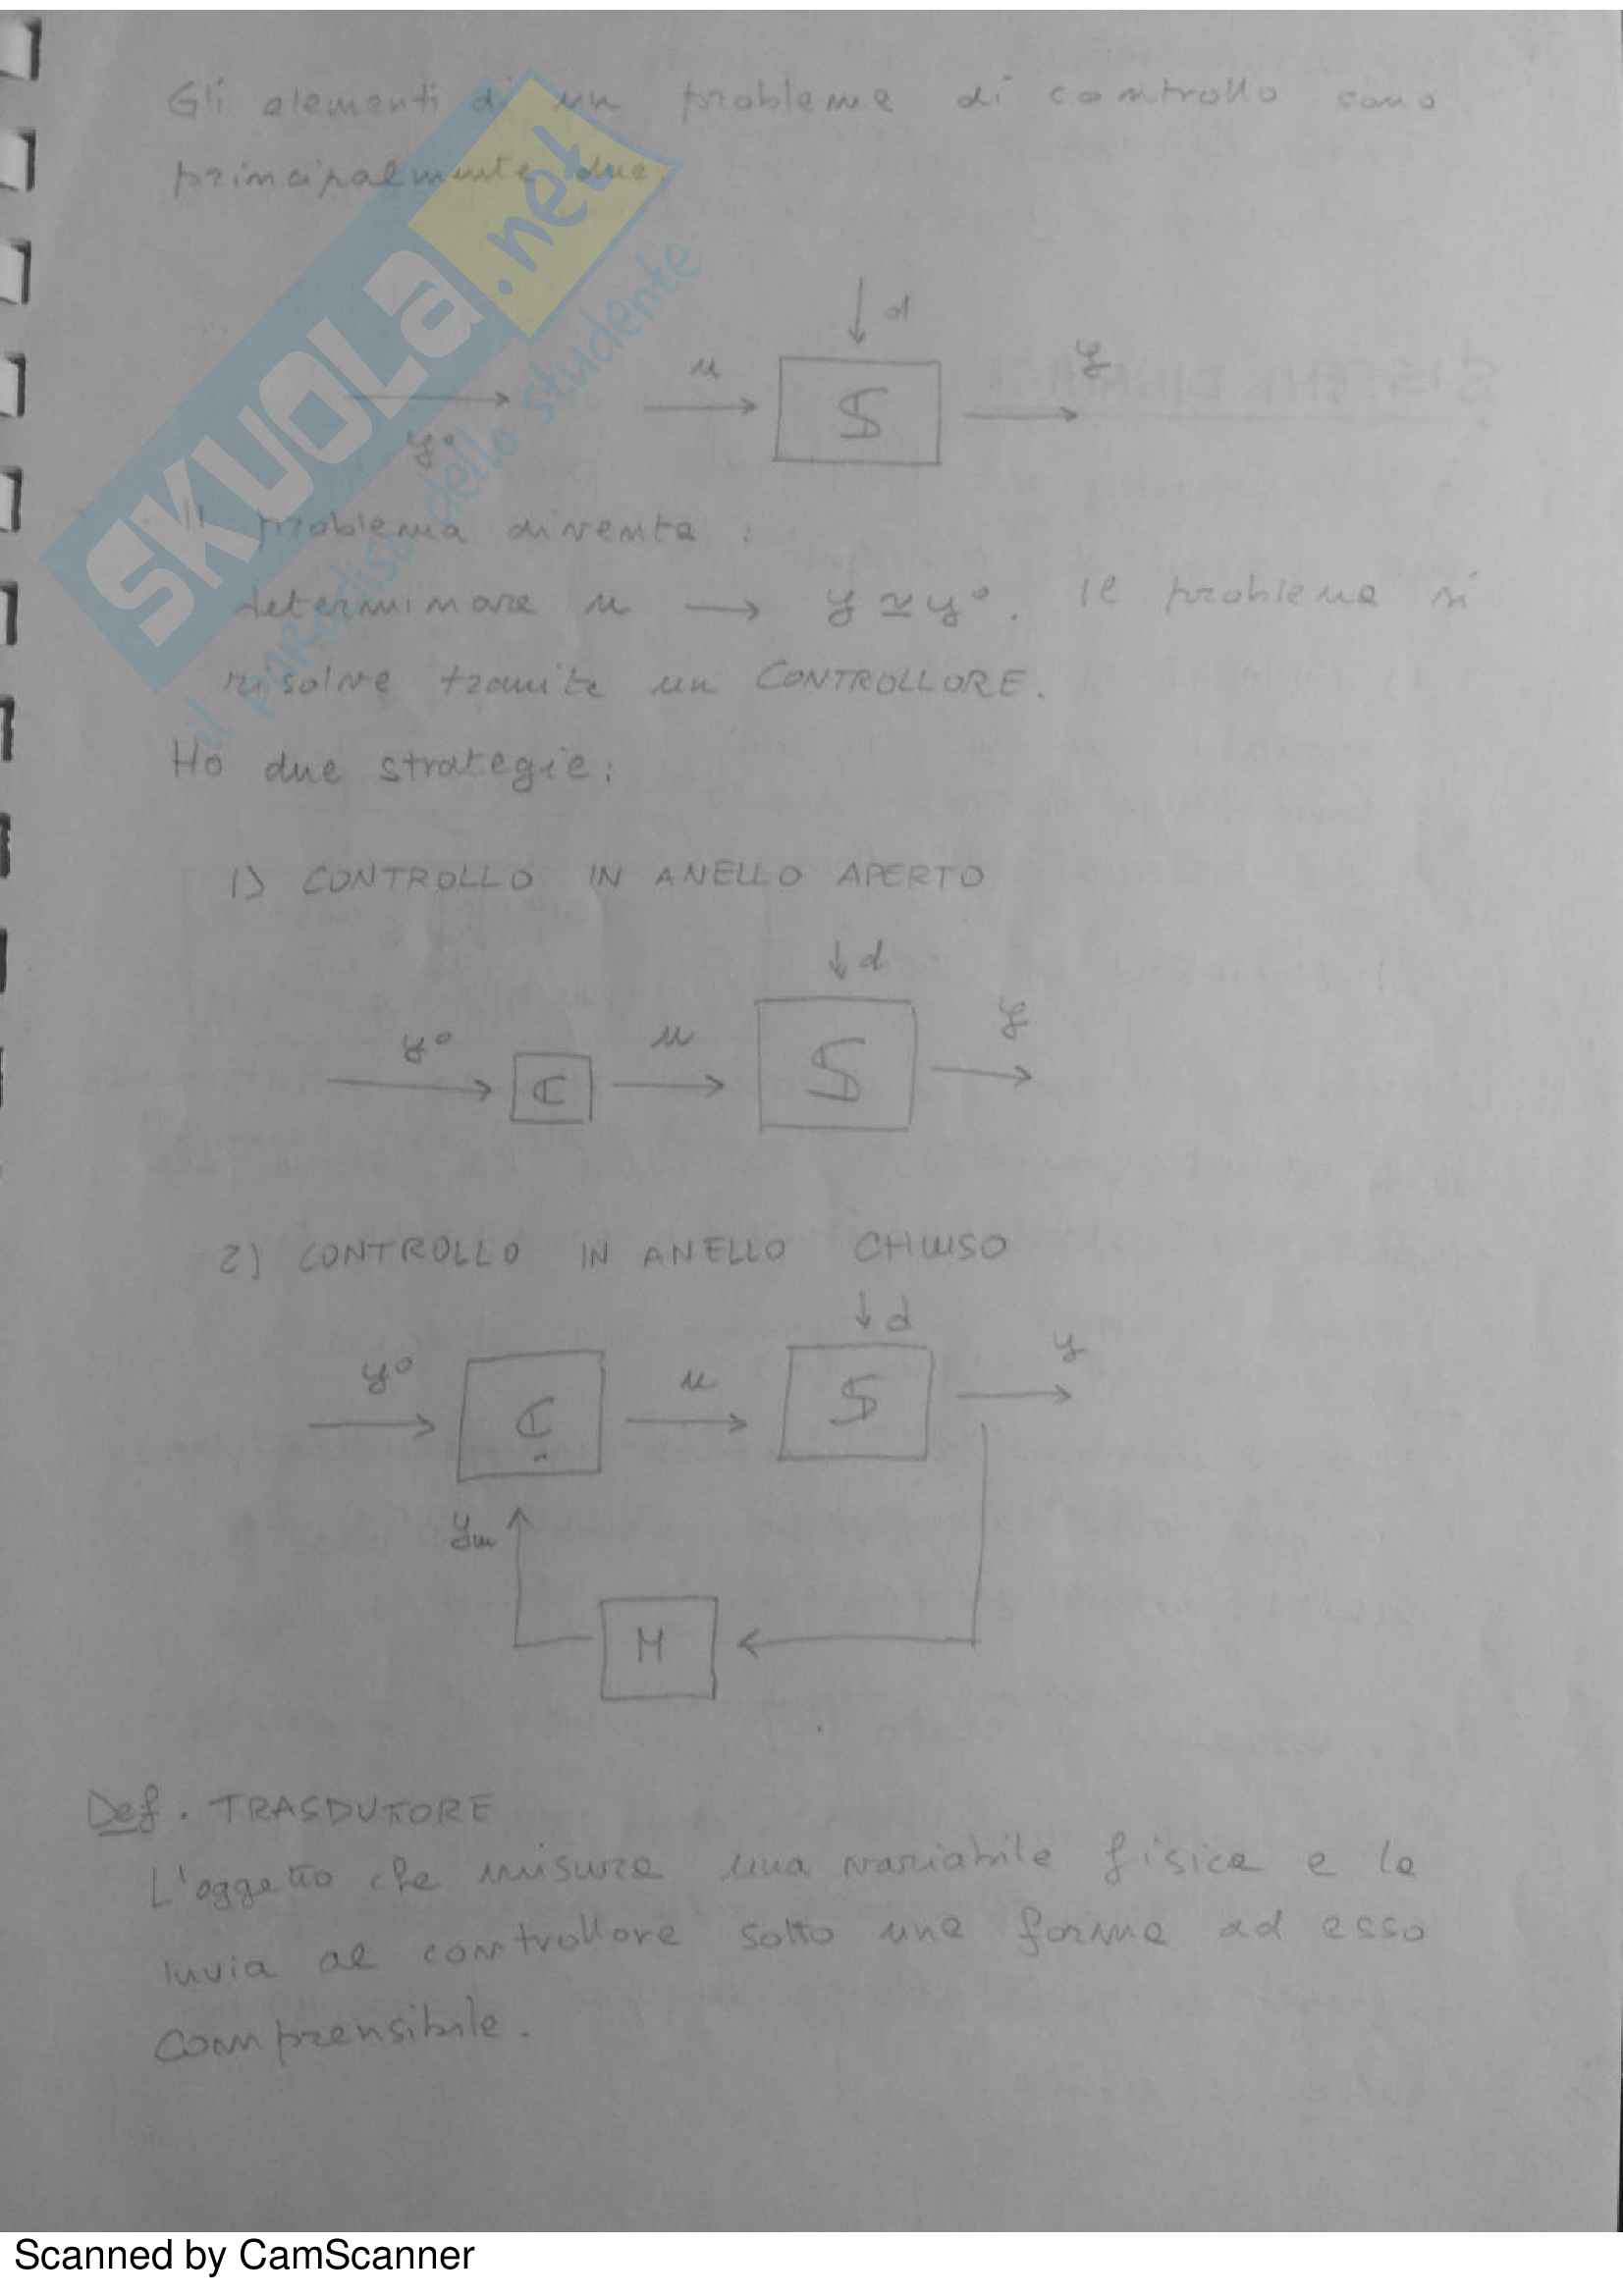 Gli elementi di un problema di controllo sono
principalmente due.
d
u
S
y
y°
Il problema diventa :
determinare u → y ≃ y°. Il problema si
risolve tramite un CONTROLLORE.
Ho due strategie:
1) CONTROLLO IN ANELLO APERTO
d
y°
C
u
S
y
2) CONTROLLO IN ANELLO CHIUSO
d
y°
C
u
S
y
ym
M
Def. TRASDUTTORE
L'oggetto che misura una variabile fisica e la
invia al controllore sotto una forma ad esso
comprensibile.
SKUOLA.net
il paradiso dello studente
Scanned by CamScanner